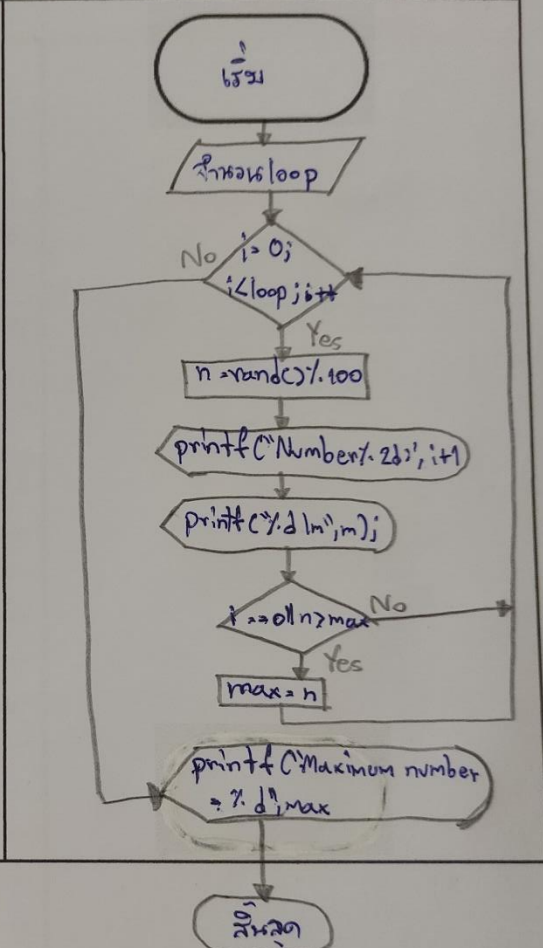 เริ่ม
จำนวนloop
No
i= 0;
i<loop;i++
Yes
n =rand()%100
printf("Number%2d:",i+1
printf("%d\n",n);
i ==0||n>max
No
Yes
max=n
printf("Maximum number
= %d",max
สิ้นสุด